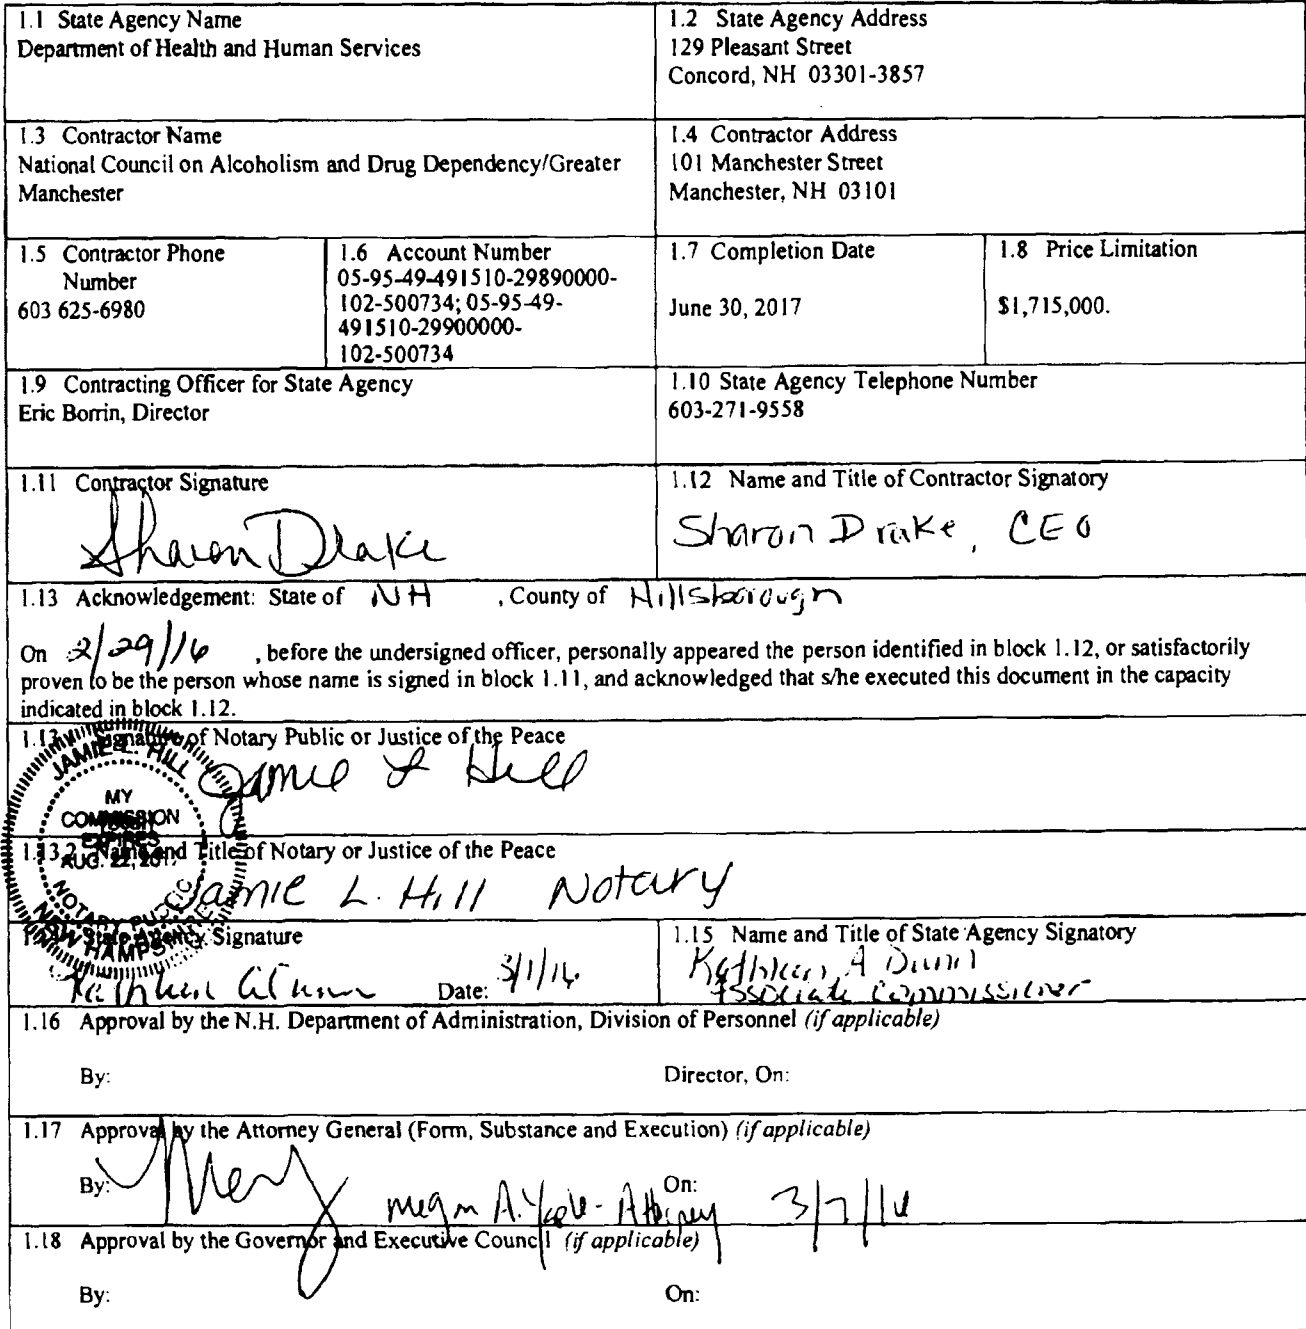 1.1 State Agency Name
Department of Health and Human Services
1.2 State Agency Address
129 Pleasant Street
Concord, NH 03301-3857
1.3 Contractor Name
National Council on Alcoholism and Drug Dependency/Greater
Manchester
1.4 Contractor Address
101 Manchester Street
Manchester, NH 03101
1.5 Contractor Phone
Number
603 625-6980
1.6 Account Number
05-95-49-491510-29890000-
102-500734; 05-95-49-
491510-29900000-
102-500734
1.7 Completion Date
June 30, 2017
1.8 Price Limitation
$1,715,000.
1.9 Contracting Officer for State Agency
Eric Borrin, Director
1.10 State Agency Telephone Number
603-271-9558
1.11 Contractor Signature
Sharon Drake
1.12 Name and Title of Contractor Signatory
Sharon Drake, CEO
1.13 Acknowledgement: State of NH , County of Hillsborough
On 2/29/16 , before the undersigned officer, personally appeared the person identified in block 1.12, or satisfactorily
proven to be the person whose name is signed in block 1.11, and acknowledged that s/he executed this document in the capacity
indicated in block 1.12.
1.13.1 Signature of Notary Public or Justice of the Peace
Jamie L Hill
JAMIE L. HILL
MY
COMMISSION
EXPIRES
AUG. 22, 2017
NOTARY PUBLIC
NEW HAMPSHIRE
1.13.2 Name and Title of Notary or Justice of the Peace
Jamie L. Hill Notary
1.14 State Agency Signature
Kathleen A Dunn Date: 3/1/16
1.15 Name and Title of State Agency Signatory
Kathleen A Dunn
Associate Commissioner
1.16 Approval by the N.H. Department of Administration, Division of Personnel (if applicable)
By: Director, On:
1.17 Approval by the Attorney General (Form, Substance and Execution) (if applicable)
By: Megan A. - Attorney On: 3/7/16
1.18 Approval by the Governor and Executive Council (if applicable)
By: On: